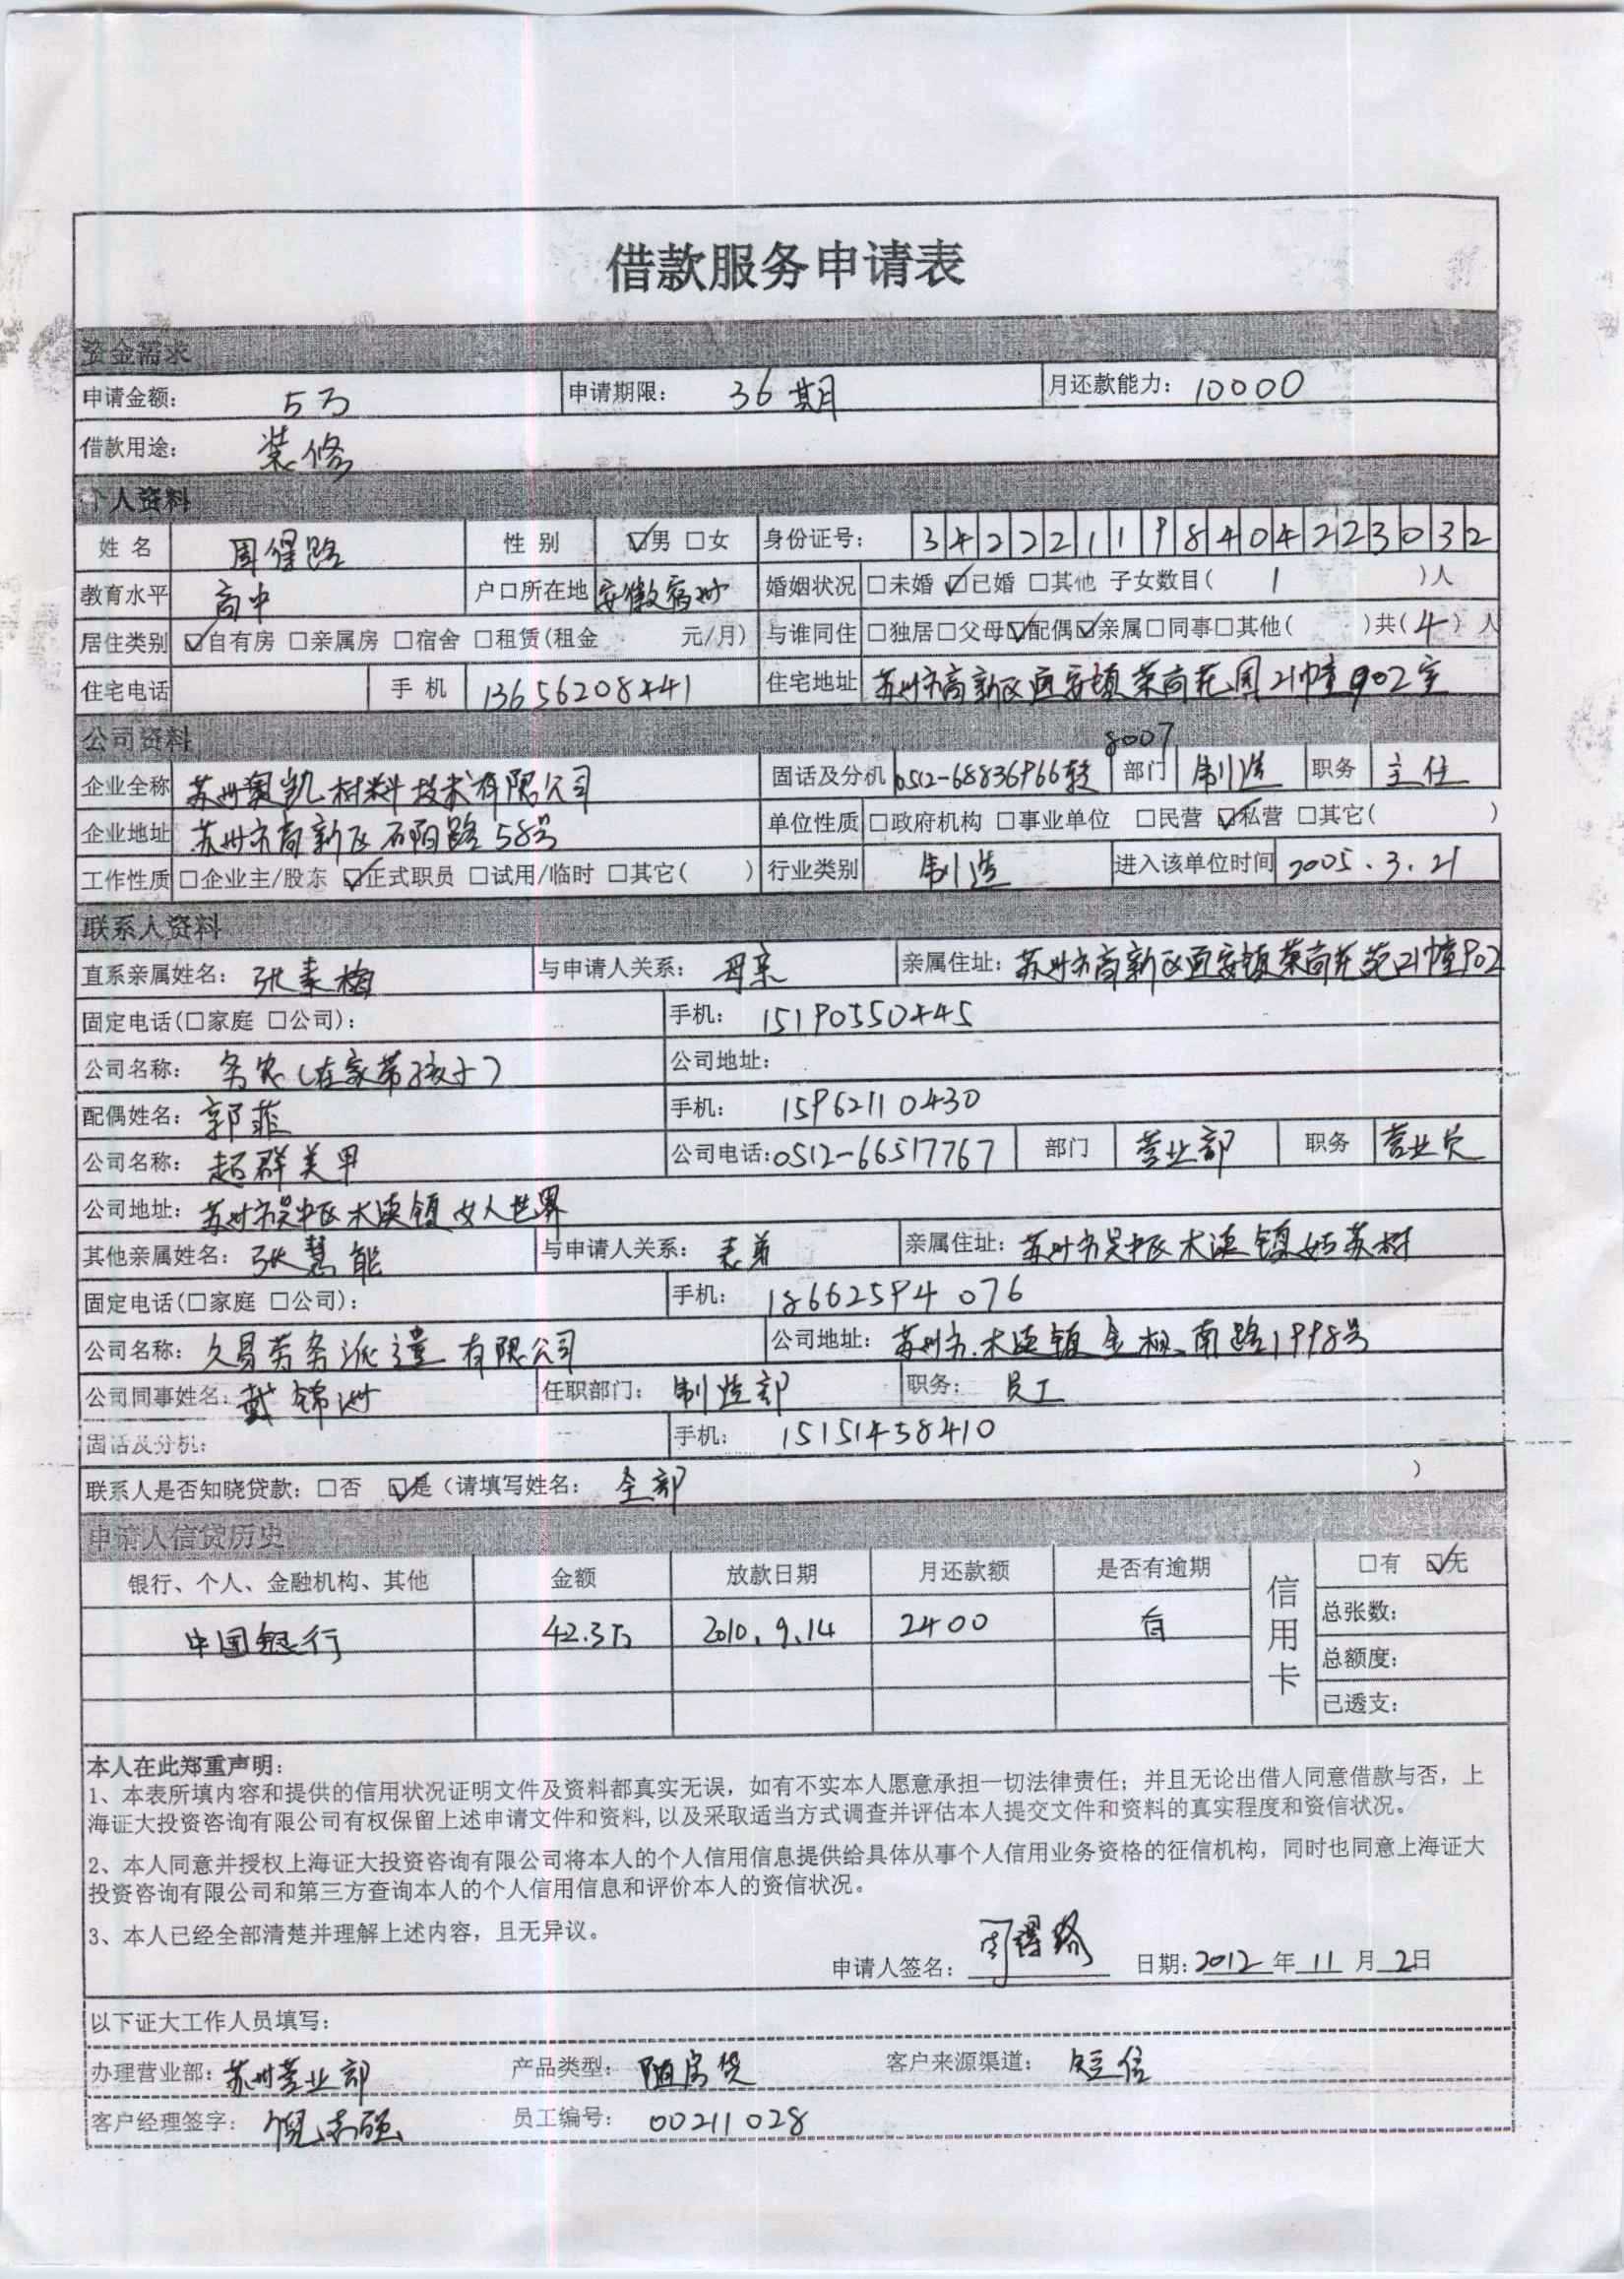 借款服务申请表
资金需求
申请金额: 5万 申请期限: 36期 月还款能力: 10000
借款用途: 装修
个人资料
姓名 周得路 性别 ☑男 □女 身份证号: 342221198404223032
教育水平 高中 户口所在地 安徽宿州 婚姻状况 □未婚 ☑已婚 □其他 子女数目( 1 )人
居住类别 ☑自有房 □亲属房 □宿舍 □租赁(租金 元/月) 与谁同住 □独居□父母☑配偶☑亲属□同事□其他( )共(4)人
住宅电话 手机 13656208441 住宅地址 苏州市高新区通安镇莱尚花园21幢902室
公司资料
8007
企业全称 苏州奥凯材料技术有限公司 固话及分机 0512-68836966转 部门 制造 职务 主任
企业地址 苏州市高新区石阳路58号 单位性质 □政府机构 □事业单位 □民营 ☑私营 □其它( )
工作性质 □企业主/股东 ☑正式职员 □试用/临时 □其它( ) 行业类别 制造 进入该单位时间 2005.3.21
联系人资料
直系亲属姓名: 张素梅 与申请人关系: 母亲 亲属住址: 苏州市高新区通安镇莱尚花苑21幢902
固定电话(□家庭 □公司): 手机: 15190550445
公司名称: 务农(在家带孩子) 公司地址:
配偶姓名: 郭菲 手机: 15962110430
公司名称: 超群美甲 公司电话: 0512-66517767 部门 营业部 职务 营业员
公司地址: 苏州市吴中区木渎镇女人世界
其他亲属姓名: 张慧能 与申请人关系: 表弟 亲属住址: 苏州市吴中区木渎镇姑苏村
固定电话(□家庭 □公司): 手机: 18662594076
公司名称: 久易劳务派遣有限公司 公司地址: 苏州市木渎镇金枫南路1998号
公司同事姓名: 戴锦洲 任职部门: 制造部 职务: 员工
固话及分机: 手机: 15151458410
联系人是否知晓贷款: □否 ☑是(请填写姓名: 全部 )
申请人信贷历史
银行、个人、金融机构、其他 金额 放款日期 月还款额 是否有逾期 信用卡 □有 ☑无
中国银行 42.3万 2010.9.14 2400 有 总张数:
总额度:
已透支:
本人在此郑重声明:
1、本表所填内容和提供的信用状况证明文件及资料都真实无误，如有不实本人愿意承担一切法律责任；并且无论出借人同意借款与否，上
海证大投资咨询有限公司有权保留上述申请文件和资料,以及采取适当方式调查并评估本人提交文件和资料的真实程度和资信状况。
2、本人同意并授权上海证大投资咨询有限公司将本人的个人信用信息提供给具体从事个人信用业务资格的征信机构，同时也同意上海证大
投资咨询有限公司和第三方查询本人的个人信用信息和评价本人的资信状况。
3、本人已经全部清楚并理解上述内容，且无异议。
申请人签名: 周得路 日期: 2012年11月2日
以下证大工作人员填写:
办理营业部: 苏州营业部 产品类型: 随房贷 客户来源渠道: 短信
客户经理签字: 倪志强 员工编号: 00211028